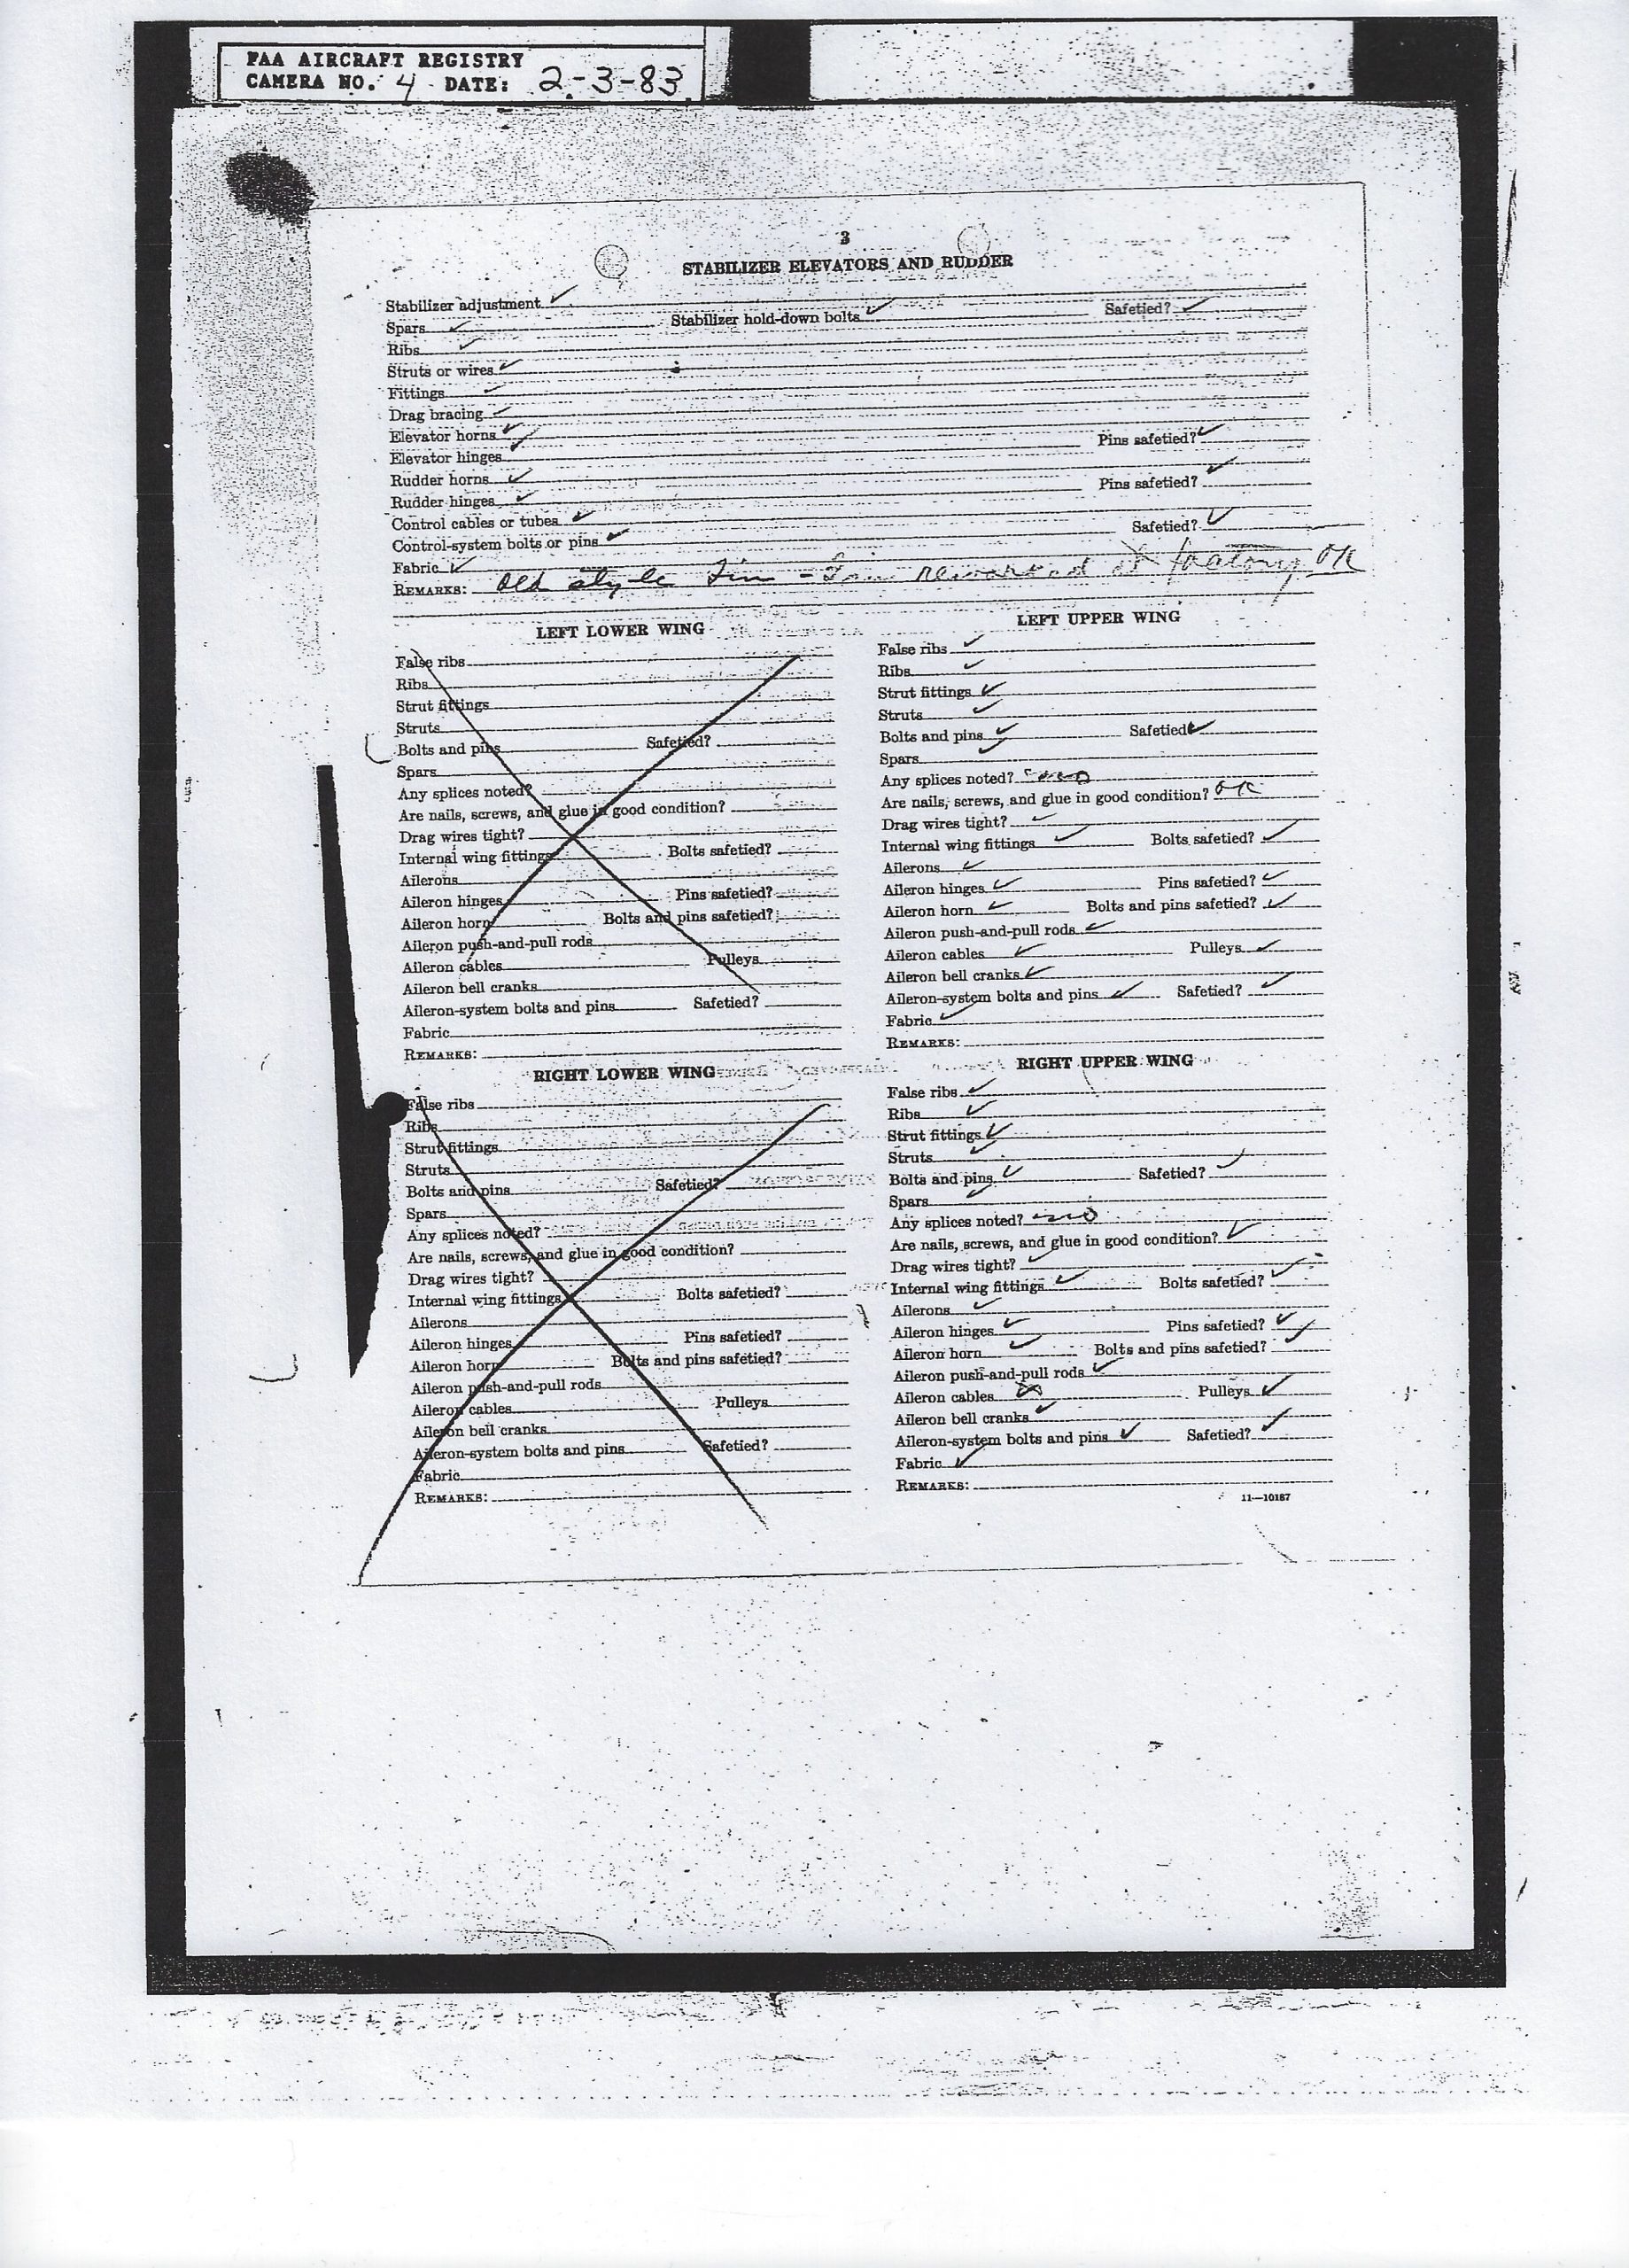 FAA AIRCRAFT REGISTRY
CAMERA NO. 4 DATE: 2-3-83
3
STABILIZER ELEVATORS AND RUDDER
Stabilizer adjustment ✓
Spars ✓ Stabilizer hold-down bolts ✓ Safetied? ✓
Ribs ✓
Struts or wires ✓
Fittings ✓
Drag bracing ✓
Elevator horns ✓
Elevator hinges ✓ Pins safetied? ✓
Rudder horns ✓
Rudder hinges ✓ Pins safetied? ✓
Control cables or tubes ✓
Control-system bolts or pins ✓ Safetied? ✓
Fabric ✓
REMARKS: Old style fin - at factory OK
LEFT LOWER WING
False ribs
Ribs
Strut fittings
Struts
Bolts and pins Safetied?
Spars
Any splices noted?
Are nails, screws, and glue in good condition?
Drag wires tight?
Internal wing fittings Bolts safetied?
Ailerons
Aileron hinges Pins safetied?
Aileron horn Bolts and pins safetied?
Aileron push-and-pull rods
Aileron cables Pulleys
Aileron bell cranks
Aileron-system bolts and pins Safetied?
Fabric
REMARKS:
LEFT UPPER WING
False ribs ✓
Ribs ✓
Strut fittings ✓
Struts ✓
Bolts and pins ✓ Safetied ✓
Spars ✓
Any splices noted? no
Are nails, screws, and glue in good condition? OK
Drag wires tight? ✓
Internal wing fittings ✓ Bolts safetied? ✓
Ailerons ✓
Aileron hinges ✓ Pins safetied? ✓
Aileron horn ✓ Bolts and pins safetied? ✓
Aileron push-and-pull rods ✓
Aileron cables ✓ Pulleys ✓
Aileron bell cranks ✓
Aileron-system bolts and pins ✓ Safetied? ✓
Fabric ✓
REMARKS:
RIGHT LOWER WING
False ribs
Ribs
Strut fittings
Struts
Bolts and pins Safetied?
Spars
Any splices noted?
Are nails, screws, and glue in good condition?
Drag wires tight?
Internal wing fittings Bolts safetied?
Ailerons
Aileron hinges Pins safetied?
Aileron horn Bolts and pins safetied?
Aileron push-and-pull rods
Aileron cables Pulleys
Aileron bell cranks
Aileron-system bolts and pins Safetied?
Fabric
REMARKS:
RIGHT UPPER WING
False ribs ✓
Ribs ✓
Strut fittings ✓
Struts ✓
Bolts and pins ✓ Safetied? ✓
Spars ✓
Any splices noted? no
Are nails, screws, and glue in good condition? ✓
Drag wires tight? ✓
Internal wing fittings ✓ Bolts safetied? ✓
Ailerons ✓
Aileron hinges ✓ Pins safetied? ✓
Aileron horn ✓ Bolts and pins safetied? ✓
Aileron push-and-pull rods ✓
Aileron cables ✓ Pulleys ✓
Aileron bell cranks ✓
Aileron-system bolts and pins ✓ Safetied? ✓
Fabric ✓
REMARKS:
11—10187